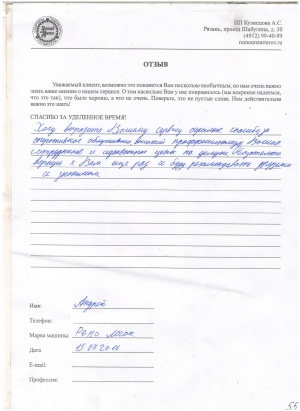 ИП Кузнецова А.С.
Рязань, проезд Шабулина, д. 30
(4912) 99-40-99
remontstarterov.ru
ОТЗЫВ
Уважаемый клиент, возможно это покажется Вам несколько необычным, но нам очень важно
знать ваше мнение о нашем сервисе. О том насколько Вам у нас понравилось (мы искренне надеемся,
что это так), что было хорошо, а что не очень. Поверьте, это не пустые слова. Нам действительно
важно это знать!
СПАСИБО ЗА УДЕЛЕННОЕ ВРЕМЯ!
Хочу выразить Вашему сервису огромное спасибо за
оперативное обслуживание высокий профессионализм Ваших
сотрудников и адекватные цены на услуги. Обязательно
вернусь к Вам еще раз и буду рекомендовать друзьям
и знакомым.
Имя: Андрей
Телефон:
Марка машины: Рено Логан
Дата 15.07.20
E-mail:
Профессия:
55